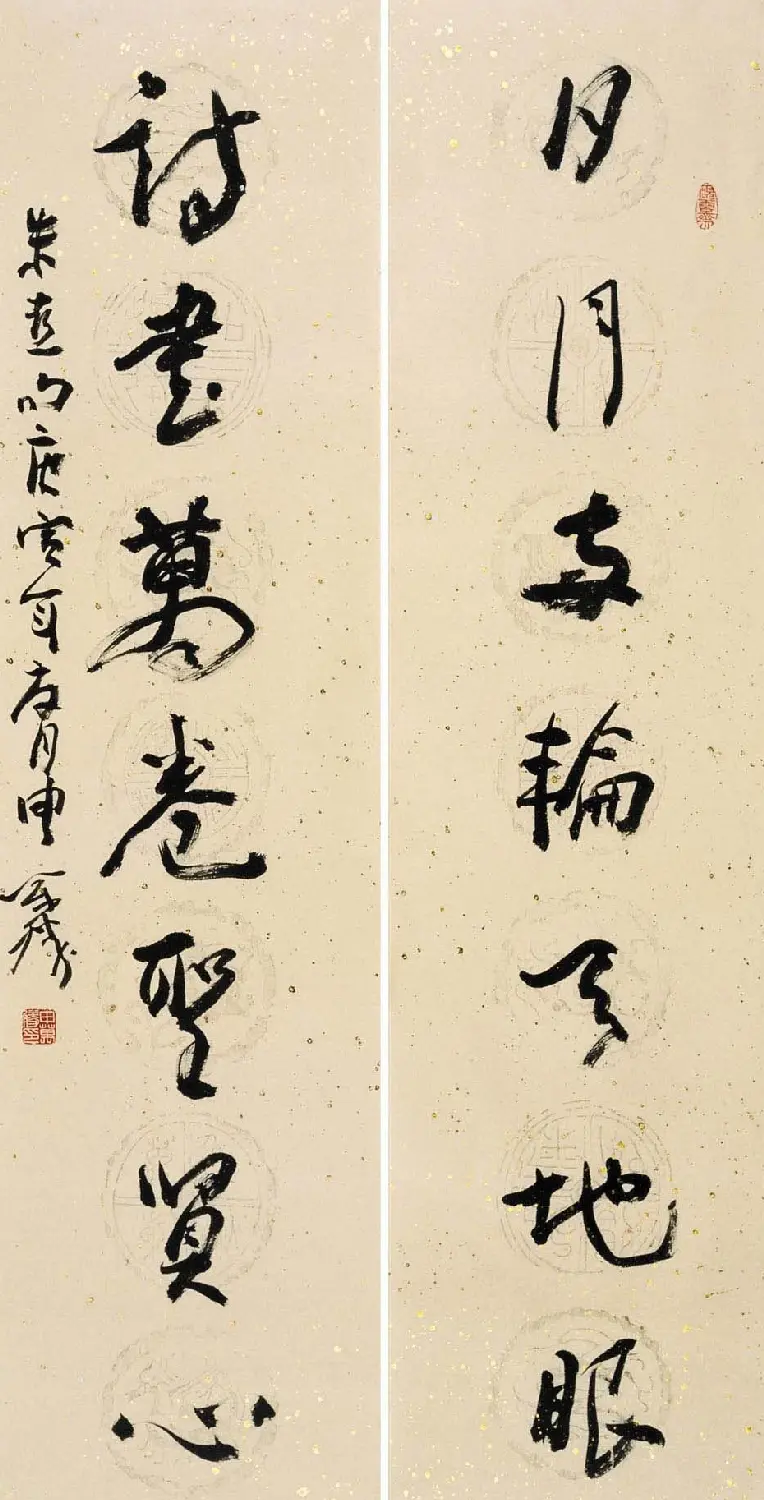 日月兩輪天地眼
詩書萬卷聖賢心
朱熹句庚寅年月申萬勝